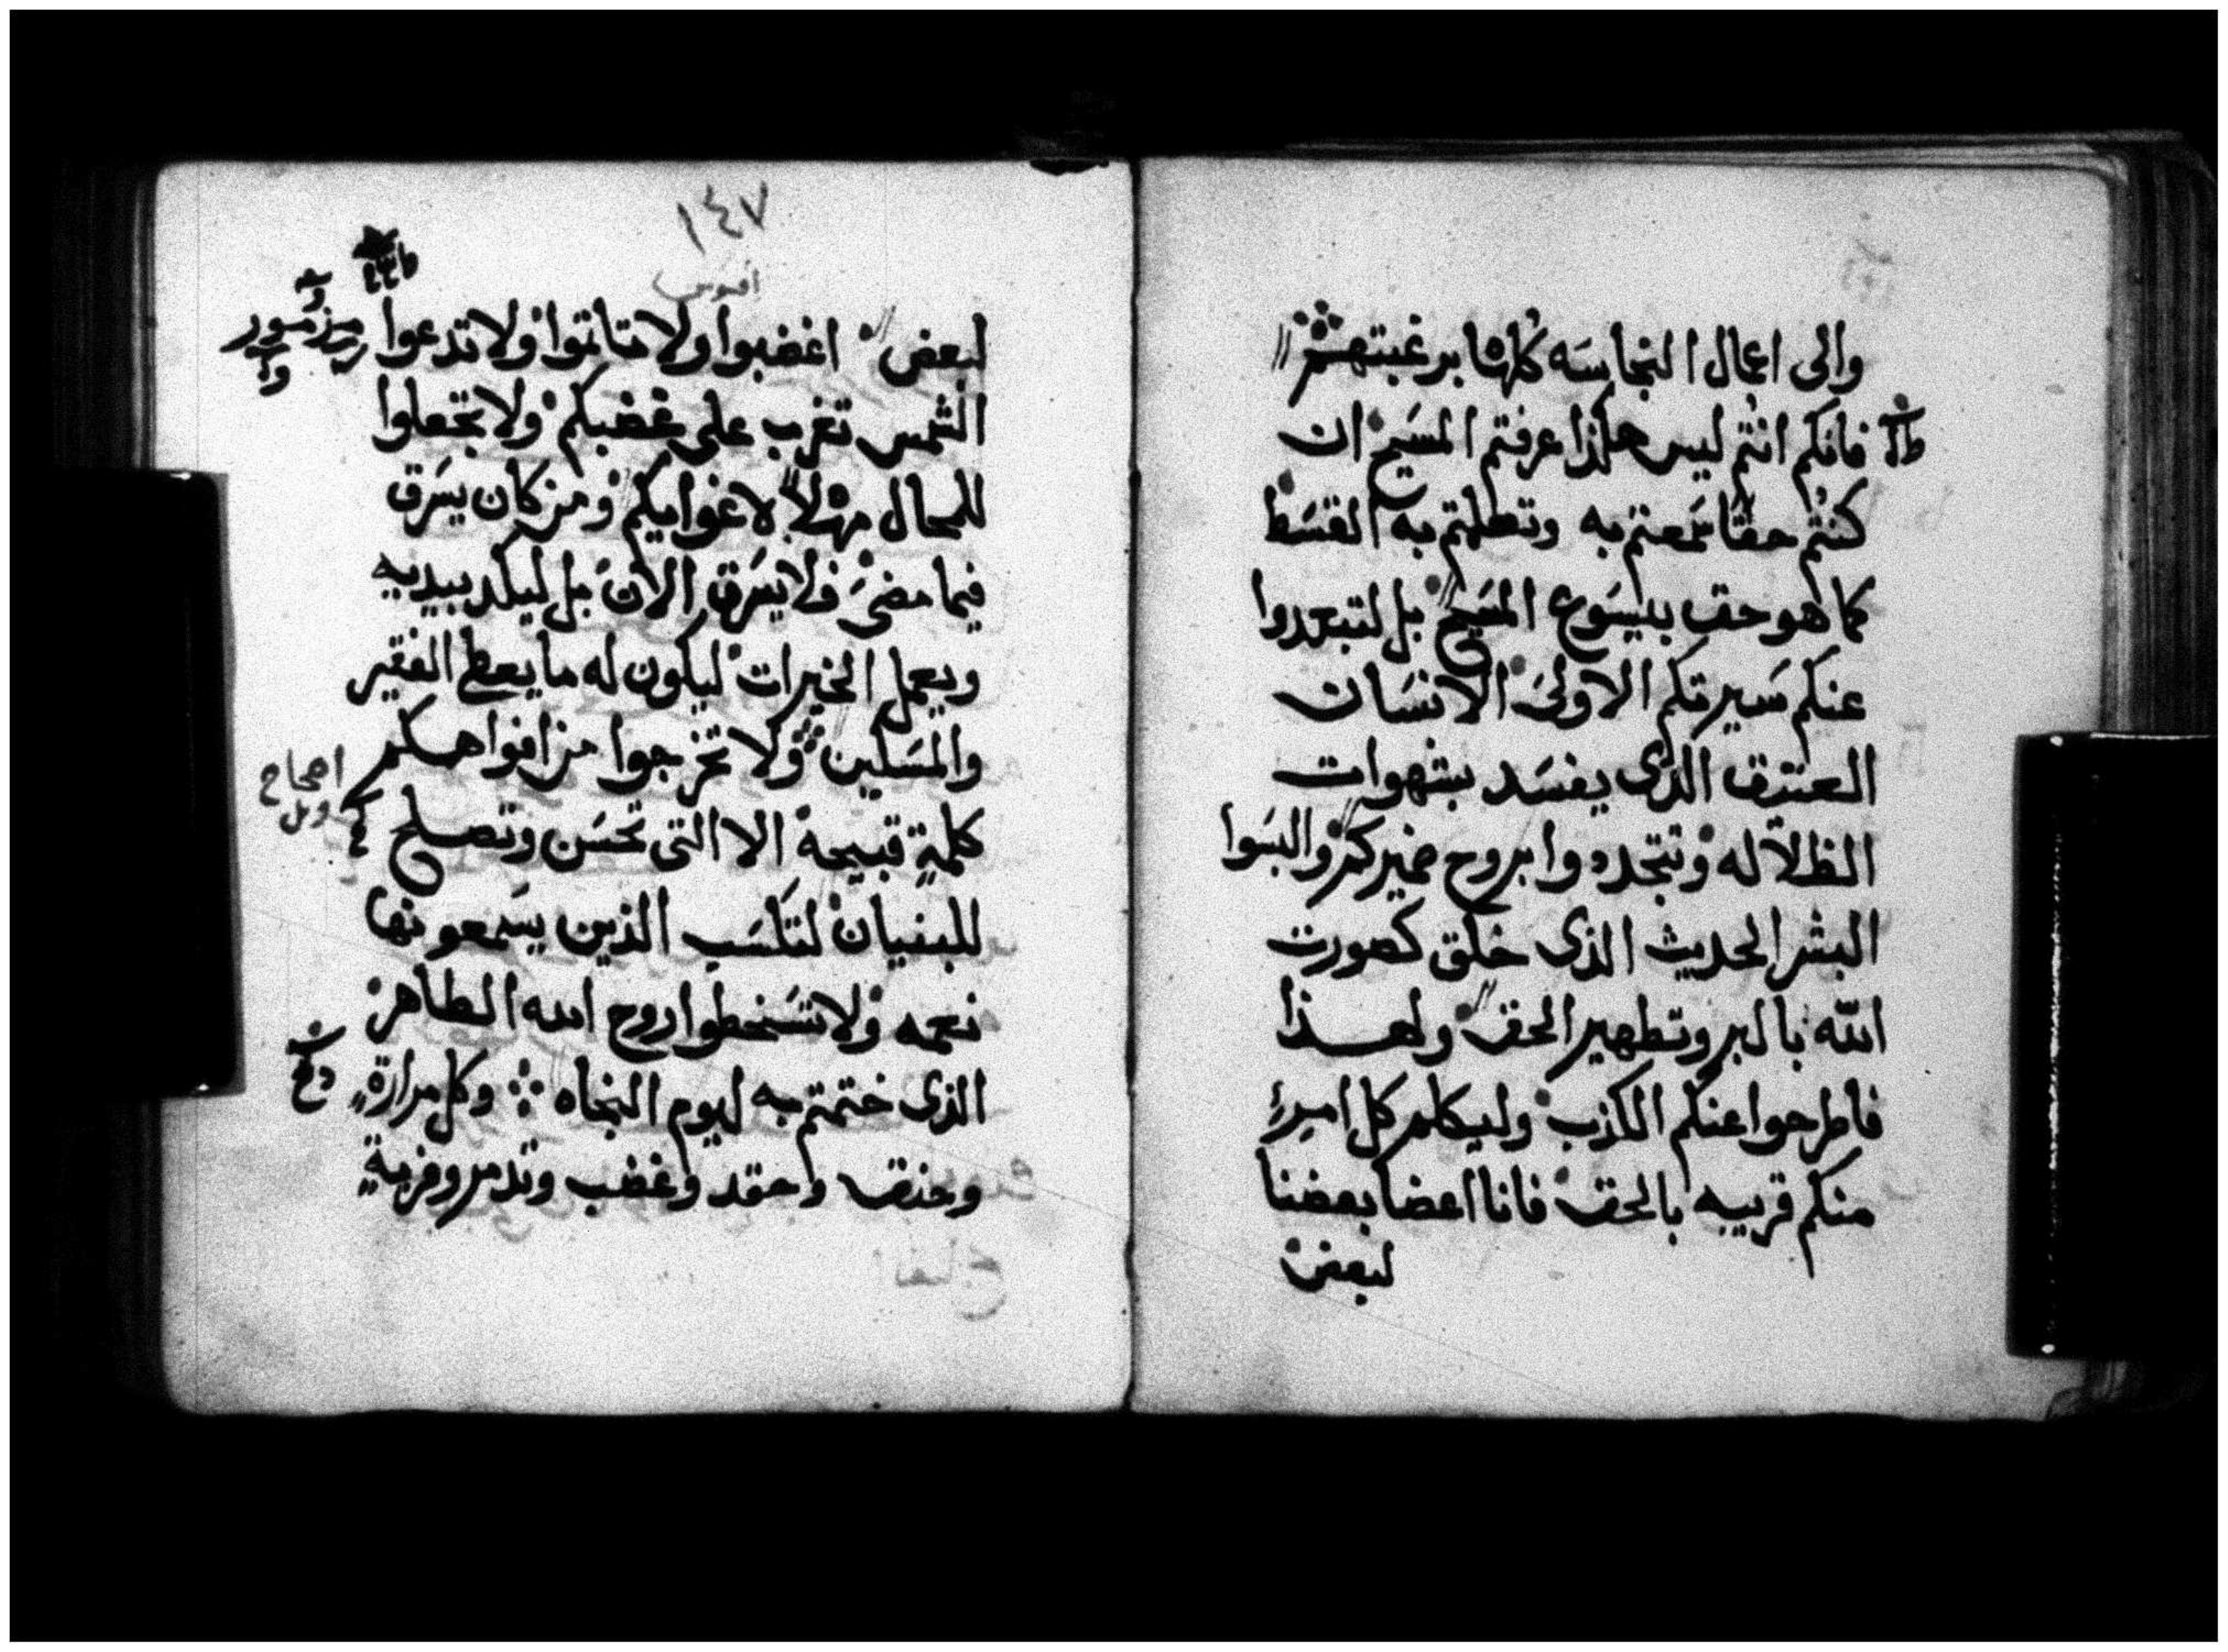 والى اعمال النجاسه كلها برغبتهم
فانكم انتم ليس هكذا عرفتم المسيح ان
كنتم حقا سمعتم به وتعلمتم به القسط
كما هو حق بيسوع المسيح بل لتبعدوا
عنكم سيرتكم الاولى الانسان
العتيق الذى يفسد بشهوات
الظلاله وتتجددوا بروح ضميركم والبسوا
البشر الحديث الذى خلق كصورت
الله بالبر وتطهير الحق ولهذا
فاطرحوا عنكم الكذب وليكلم كل امرء
منكم قريبه بالحق فانا اعضا بعضنا
لبعض
١٤٧
افسس
لبعض اغضبوا ولا تاثموا ولا تدعوا
مزمور
الشمس تغرب على غضبكم ولا تجعلوا
للمحال مهلا لاغوايكم ومن كان يسرق
فيما مضى فلا يسرق الان بل ليكد بيديه
ويعمل الخيرات ليكون له ما يعطى الفقير
والمسكين ولا تخرجوا من افواهكم
كلمة قبيحة الا التى تحسن وتصلح
للبنيان لتكسب الذين يسمعونها
نعمه ولا تسخطوا روح الله الطاهر
الذى ختمتم به ليوم النجاه وكل مرارة
وحنق وحقد وغضب وتذمر وفرية